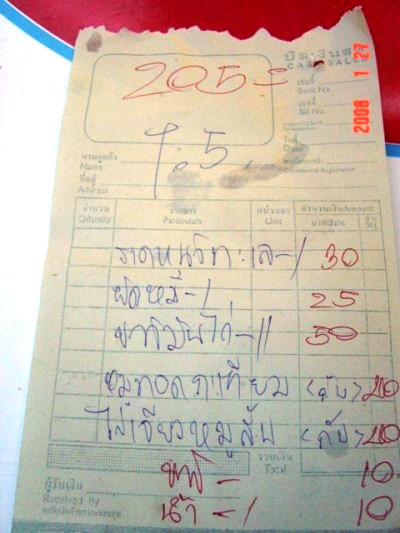 บิลเงินสด
CASH SALE
205=
เล่มที่
Book No.
เลขที่
Bill No.
2008 1 27
วันที่
Date
ต.5
นามลูกค้า
Name
ที่อยู่
Address
จำนวน รายการ หน่วยละ จำนวนเงิน Amount
Quantity Particulars Unit บาท Baht
ราดหน้าทะเล-/ 30
ผัดหมี่-/ 25
ข้าวมันไก่-// 50
หมูทอดกระเทียม <กับ> 40
ไข่เจียวหมูสับ <กับ> 40
รวมเงิน
Total
ผู้รับเงิน
Received By
10
น้ำ -/ 10